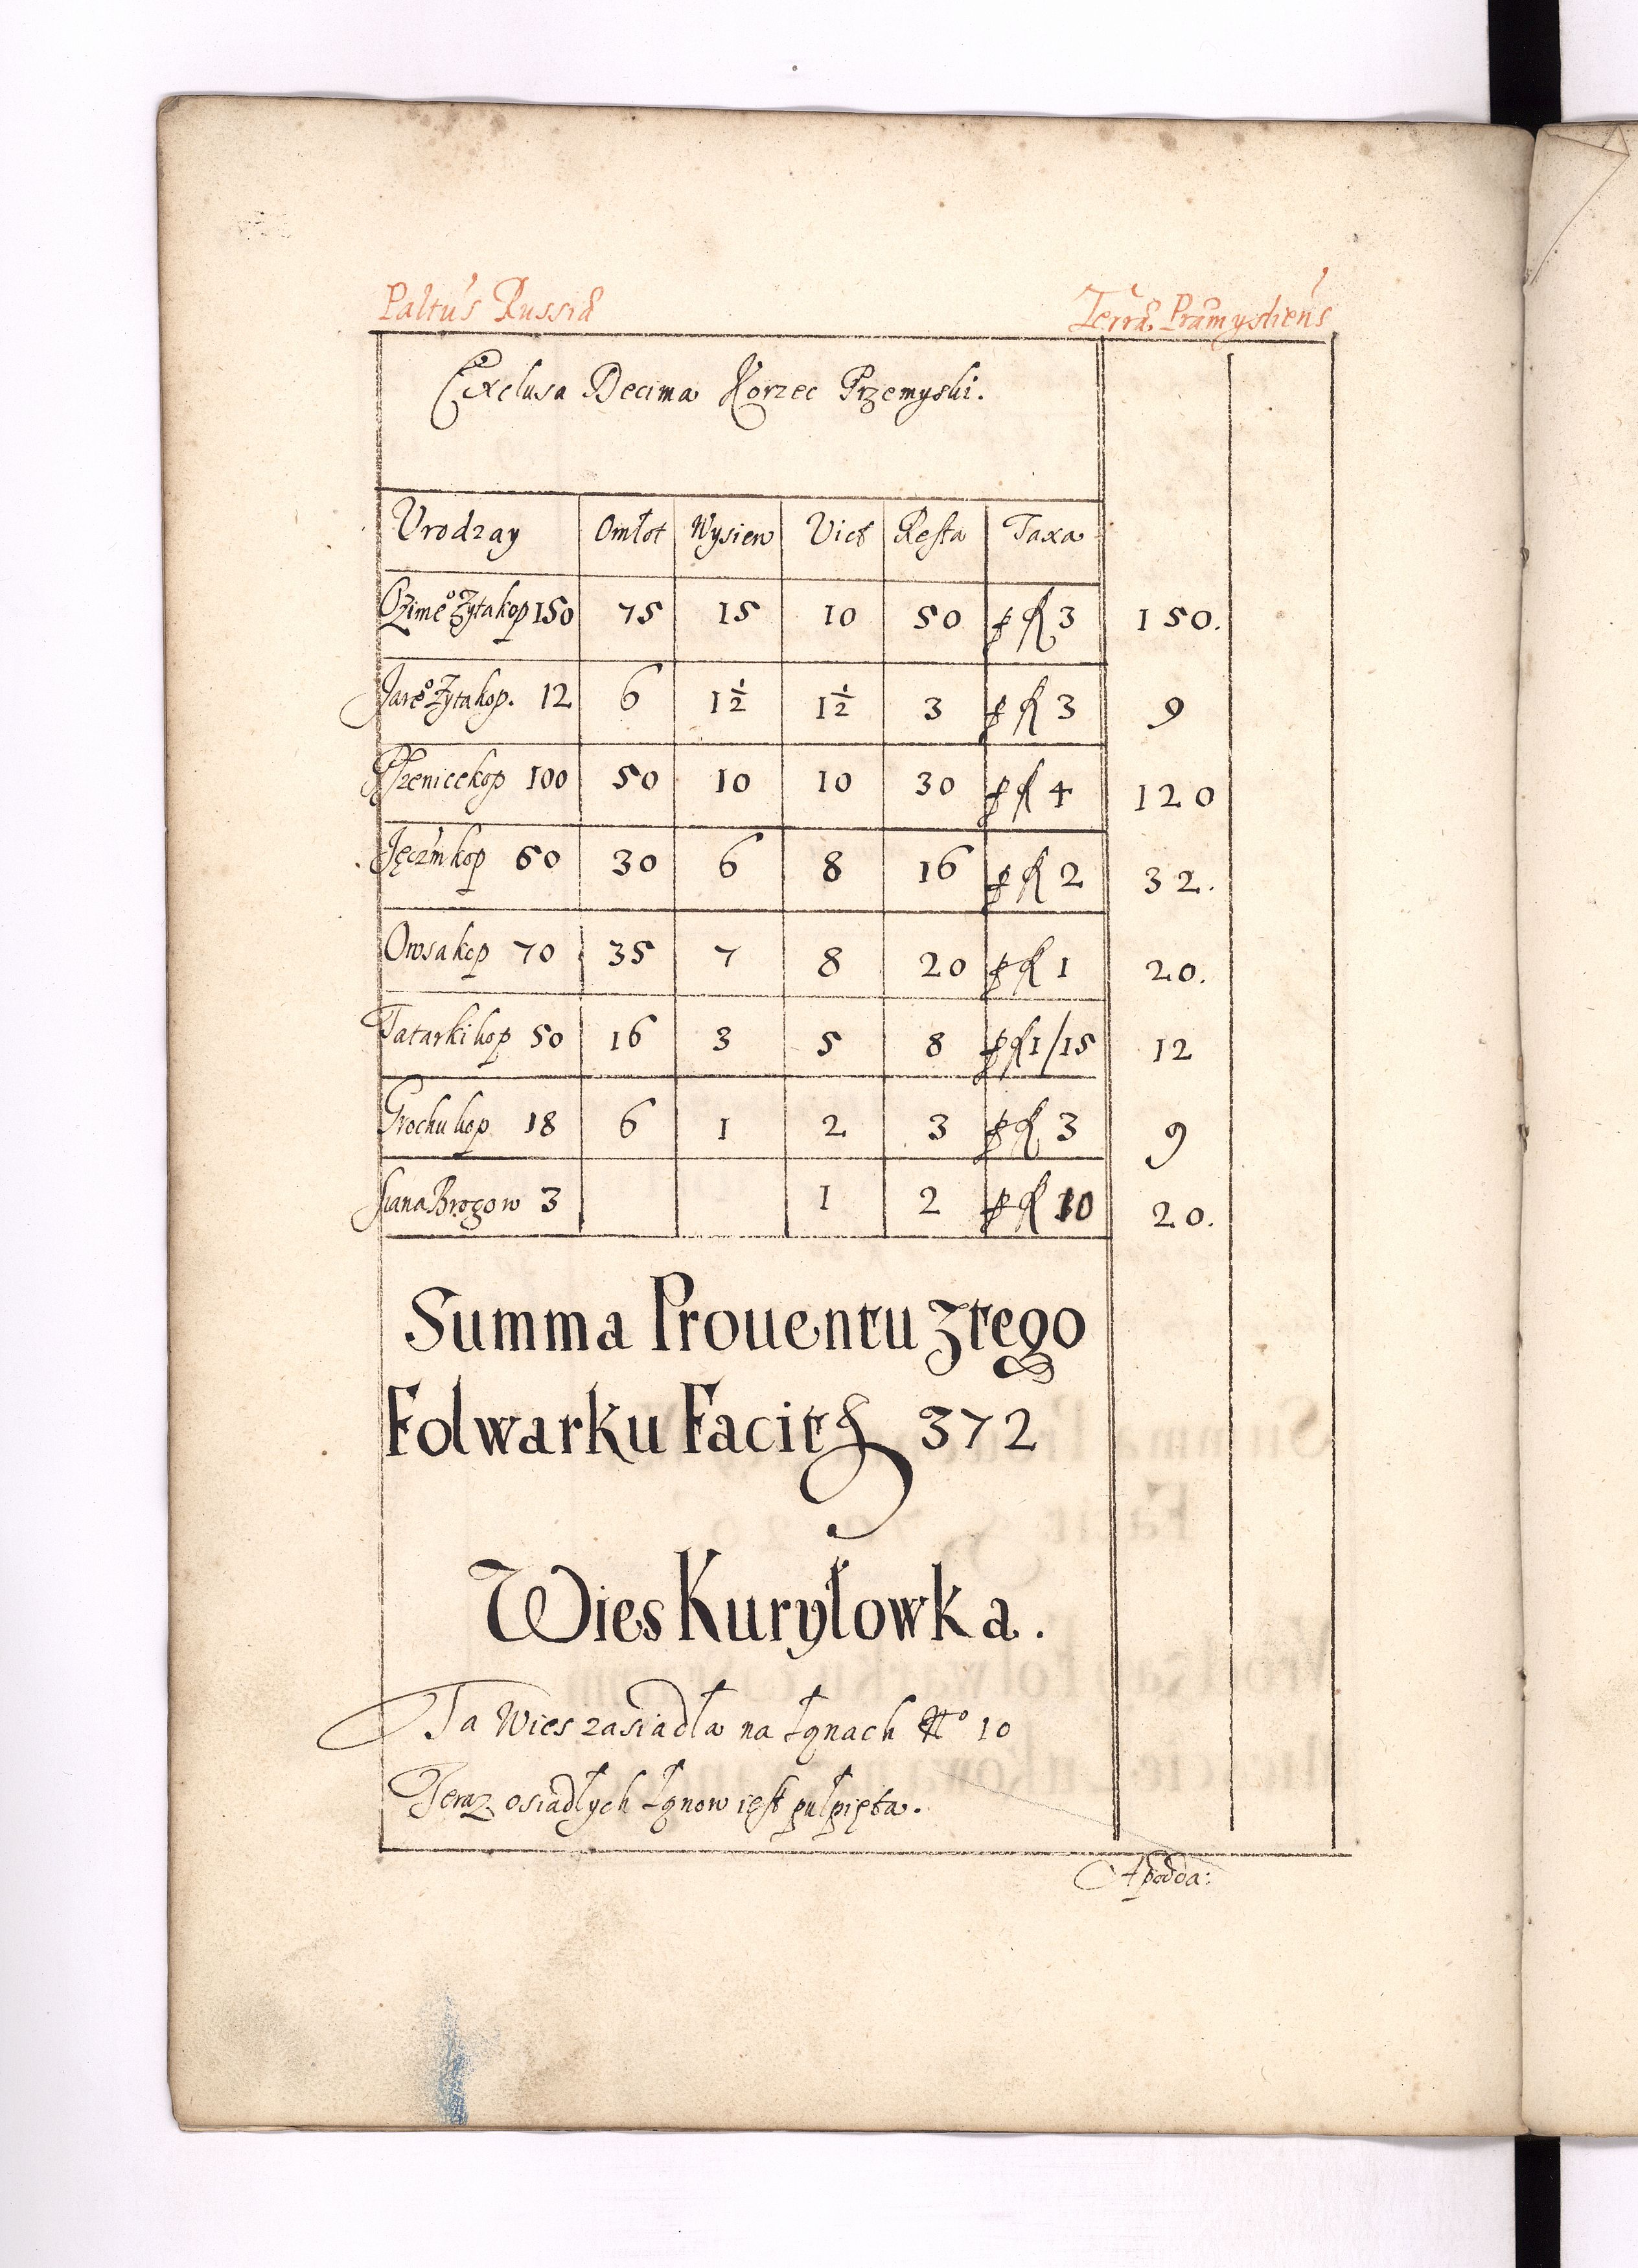 Paltus Russiæ Terræ Præmysliens
Exclusa Decima Korzec Przemyski.
Vrodzay Omłot Wysiew Vict Resta Taxa
Ozime° Żyta kop 150 75 15 10 50 p fl 3 150.
Jare° Żyta kop. 12 6 1½ 1½ 3 p fl 3 9
Pszenice kop 100 50 10 10 30 p fl 4 120
Jęczm kop 60 30 6 8 16 p fl 2 32.
Owsa kop 70 35 7 8 20 p fl 1 20.
Tatarki kop 50 16 3 5 8 p fl 1/15 12
Grochu kop 18 6 1 2 3 p fl 3 9
Siana Brogow 3 1 2 p fl 10 20.
Summa Prouentu z tego
Folwarku Facit fl 372
Wies Kuryłowka.
Ta Wies zasiadła na Łąnach N° 10
Teraz osiadłych Łąnow iest pułpięta.